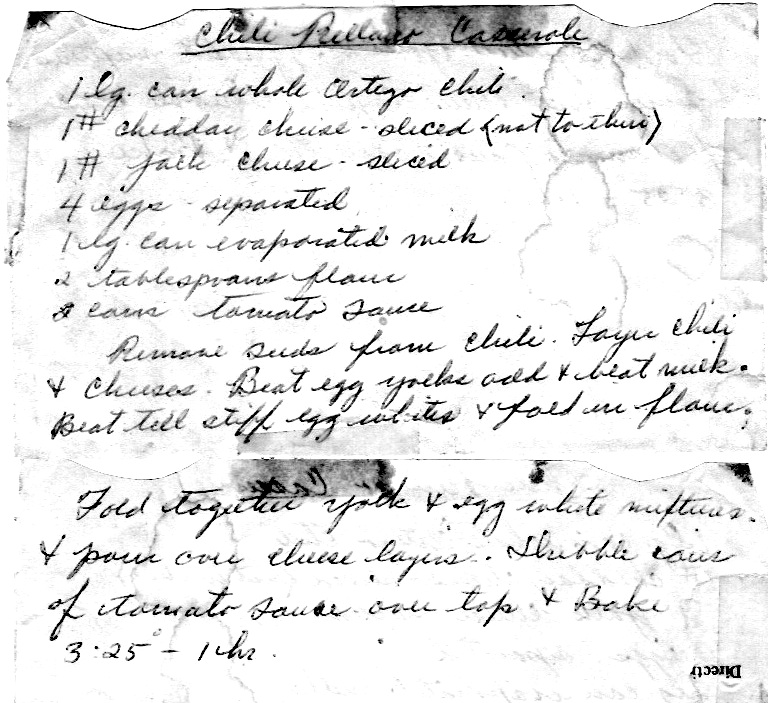 Chili Rellano Casserole
1 lg. can whole Ortego Chili
1# cheddar cheese - sliced (not to thin)
1# jack cheese - sliced
4 eggs - separated
1 lg. can evaporated milk
2 tablespoons flour
2 cans tomato sauce
Remove seeds from chili. Layer chili
& cheeses. Beat egg yolks add & beat milk.
Beat till stiff egg whites & fold in flour.
Fold together yolk & egg white mixtures.
& pour over cheese layers. Dribble cans
of tomato sauce over top & Bake
3:25° - 1 hr.
Directi